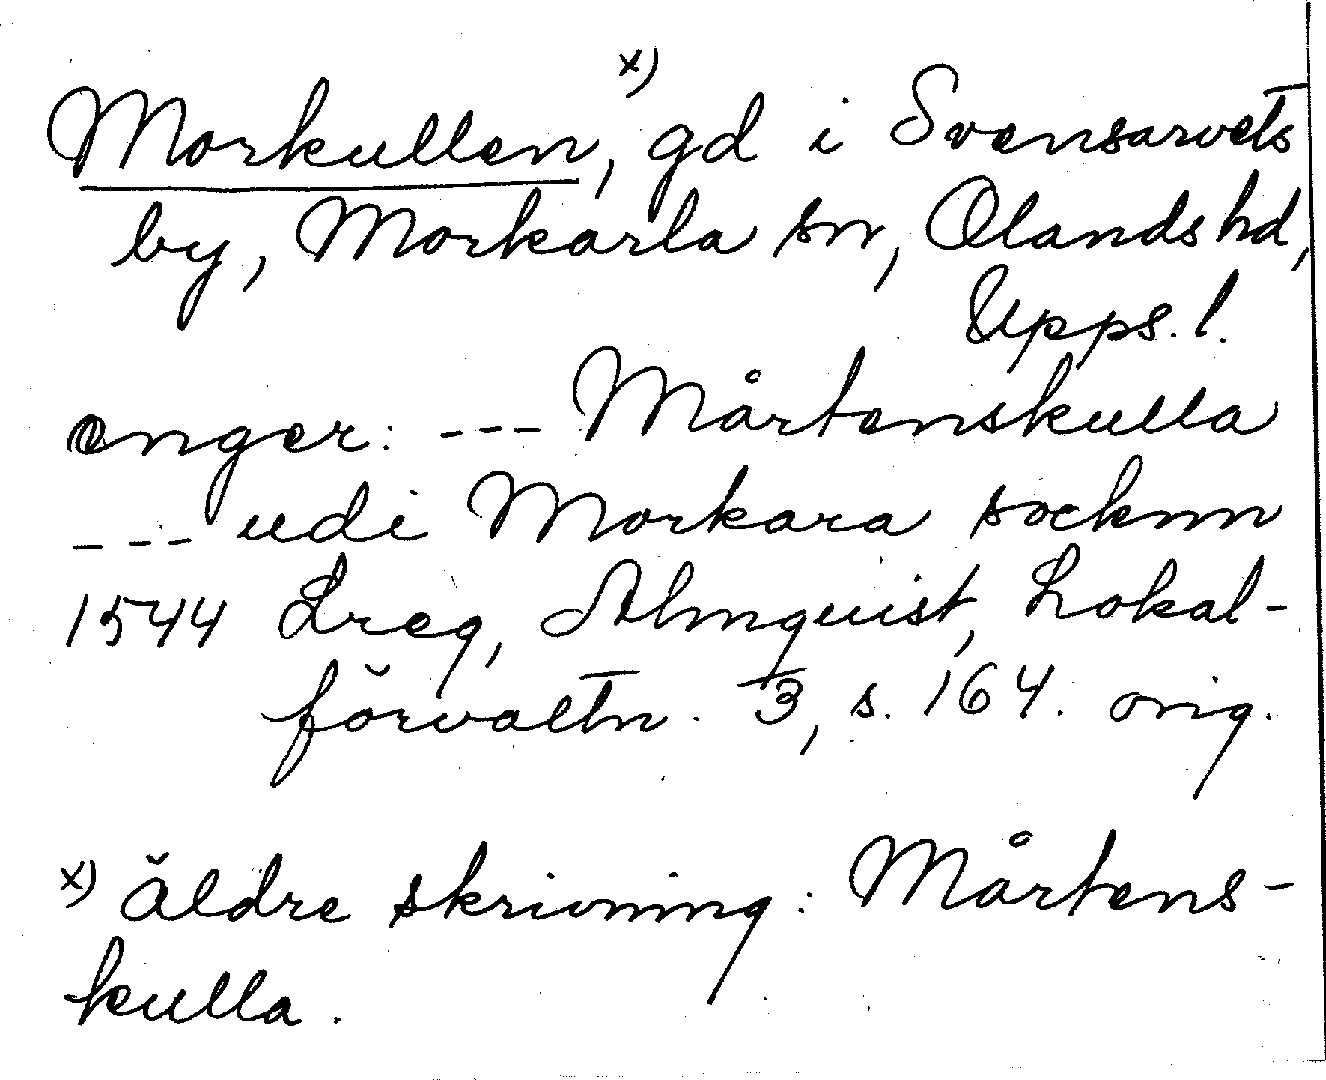 Morkullen, x) gd i Svensarvets
by, Morkarla sn, Olands hd,
Upps. l.
enger: --- Mårtenskulla
--- udi Morkara socknn
1544 Lreg, Almquist, Lokal-
förvaltn. 3, s. 164. orig.
x) Äldre skrivning: Mårtens-
kulla.